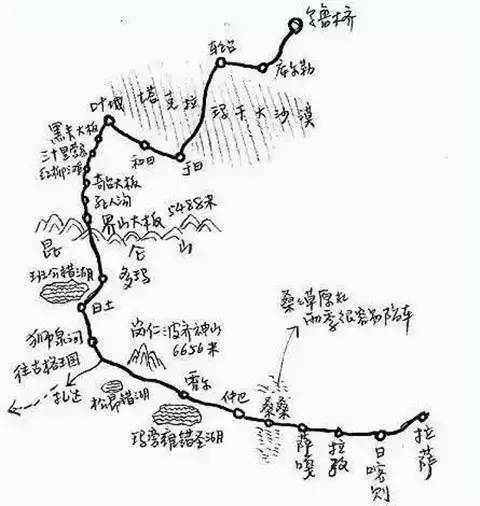 乌鲁木齐
轮台
库尔勒
塔克拉
玛干大沙漠
叶城
和田
于田
黑卡大板
三十里营房
红柳滩
奇台大板
死人沟
界山大板 5488米
昆仑山
班公错湖
多玛
日土
狮泉河
往古格王国
札达
岗仁波齐神山
6656米
霍尔
仲巴
桑桑
萨嘎
拉孜
日喀则
拉萨
桑桑草原路
雨季很容易陷车